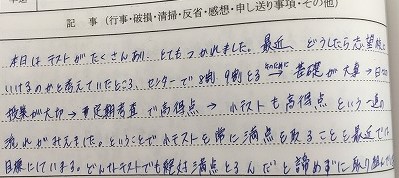 記 事 (行事・破損・清掃・反省・感想・申し送り事項・その他)
本日はテストがたくさんあり、とてもつかれました。最近、どうしたら志望校に
いけるのかと考えていたところ、センターで8割、9割とる そのために → 基礎が大事 → 日々の
授業が大切 → 定期考査で高得点 → 小テストも高得点 という一連の
流れがみえました。ということで小テストを常に満点を取ることを最近の
目標にしています。どんな小テストでも絶対満点とるんだと諦めずに取り組んで